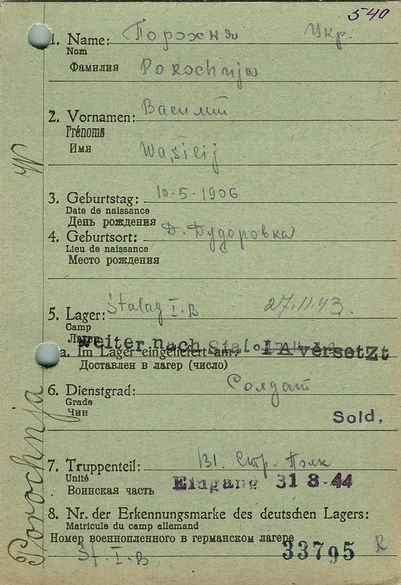 540
1. Name: Порохня Укр.
Nom
Фамилия Porochnja
2. Vornamen: Василий
Prénoms
Имя Wasilij
3. Geburtstag: 10-5-1906
Date de naissance
День рождения
4. Geburtsort: Д. Дудоровка
Lieu de naissance
Место рождения
5. Lager: Stalag I.B 27.11.43.
Camp
Лагерь
weiter nach Stalag I A versetzt
a. Im Lager eingeliefert am:
Доставлен в лагер (число)
6. Dienstgrad: Солдат
Grade
Чин
Sold.
7. Truppenteil: 131. Стр. Полк
Unité
Воинская часть
Eingang 31 8. 44
8. Nr. der Erkennungsmarke des deutschen Lagers:
Matricule du camp allemand
Номер военнопленного в германском лагере
St. I. B 33795 R
W
Porochnja